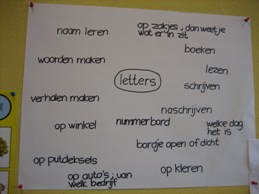 naam leren
op zakjes, dan weet je
wat er in zit
boeken
woorden maken
lezen
letters
schrijven
verhalen maken
naschrijven
op winkel
nummerbord
welke dag
het is
bordje open of dicht
op puideksels
op auto's, van
welk bedrijf
op kleren